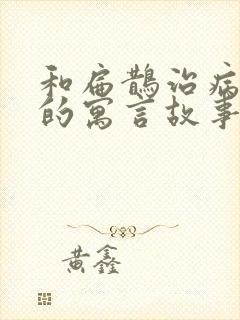 和扁鹊治病
的寓言故事
黄鑫